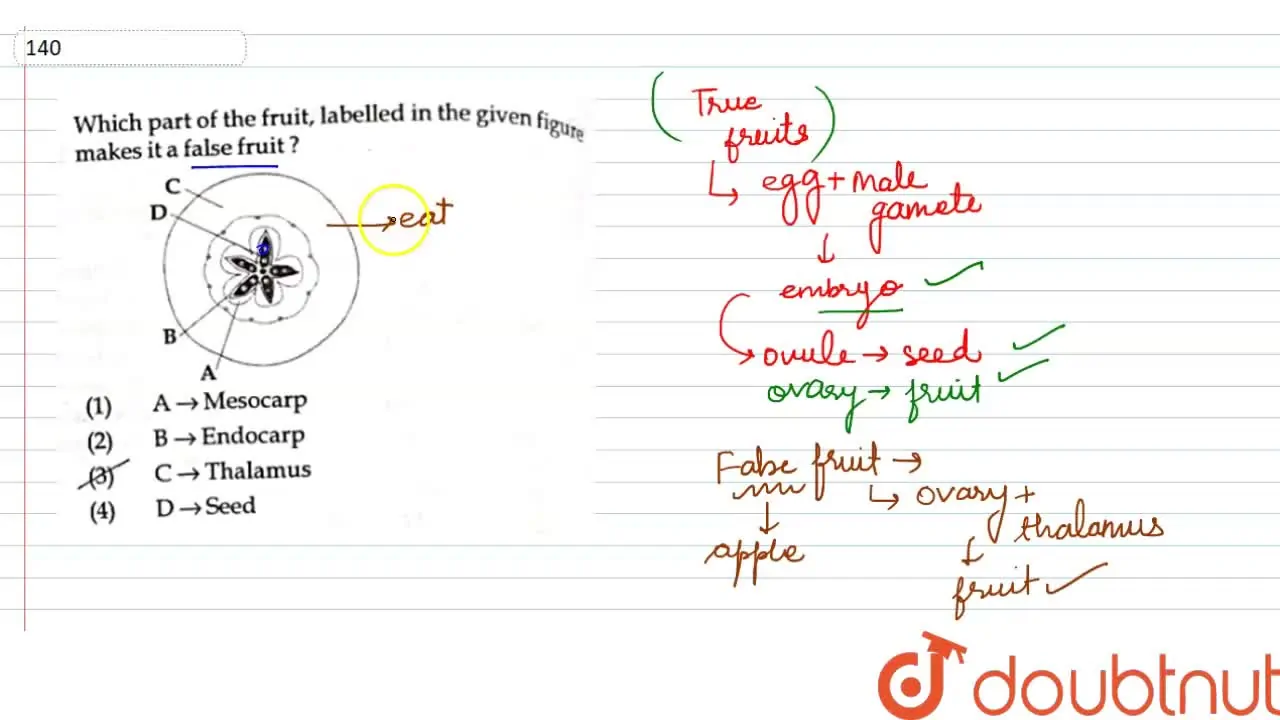 140
Which part of the fruit, labelled in the given figure
makes it a false fruit ?
C
D
B
A
eat
(1) A → Mesocarp
(2) B → Endocarp
(3) C → Thalamus
(4) D → Seed
(True
fruits)
↳ egg + male
gamete
↓
embryo ✓
↳ ovule → seed ✓
ovary → fruit ✓
False fruit →
↳ ovary +
thalamus
↓
apple
↓
fruit ✓
doubtnut